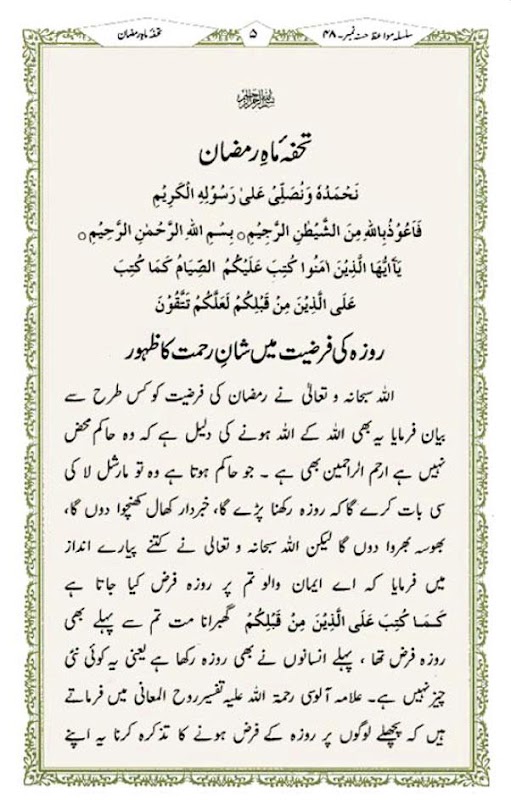 سلسلہ مواعظ حسنہ نمبر۔۴۸
۵
تحفۂ ماہِ رمضان
تحفۂ ماہِ رمضان
نَحْمَدُهٗ وَنُصَلِّیْ عَلیٰ رَسُوْلِهِ الْکَرِیْمِ
فَاَعُوْذُ بِاللّٰهِ مِنَ الشَّیْطٰنِ الرَّجِیْمِ○ بِسْمِ اللّٰهِ الرَّحْمٰنِ الرَّحِیْمِ○
یَآاَیُّهَا الَّذِیْنَ اٰمَنُوا کُتِبَ عَلَیْکُمُ الصِّیَامُ کَمَا کُتِبَ
عَلَی الَّذِیْنَ مِنْ قَبْلِکُمْ لَعَلَّکُمْ تَتَّقُوْنَ
روزہ کی فرضیت میں شانِ رحمت کا ظہور
اللہ سبحانہ و تعالیٰ نے رمضان کی فرضیت کو کس طرح سے
بیان فرمایا یہ بھی اللہ کے اللہ ہونے کی دلیل ہے کہ وہ حاکم محض
نہیں ہے ارحم الراحمین بھی ہے ۔ جو حاکم ہوتا ہے وہ تو مارشل لا کی
سی بات کرے گا کہ روزہ رکھنا پڑے گا، خبردار کھال کھنچوا دوں گا،
بھوسہ بھروا دوں گا لیکن اللہ سبحانہ و تعالی نے کتنے پیارے انداز
میں فرمایا کہ اے ایمان والو تم پر روزہ فرض کیا جاتا ہے
کَمَا کُتِبَ عَلَی الَّذِیْنَ مِنْ قَبْلِکُمْ گھبرانا مت تم سے پہلے بھی
روزہ فرض تھا ، پہلے انسانوں نے بھی روزہ رکھا ہے یعنی یہ کوئی نئی
چیز نہیں ہے۔ علامہ آلوسی رحمۃ اللہ علیہ تفسیر روح المعانی میں فرماتے
ہیں کہ پچھلے لوگوں پر روزہ کے فرض ہونے کا تذکرہ کرنا یہ اپنے